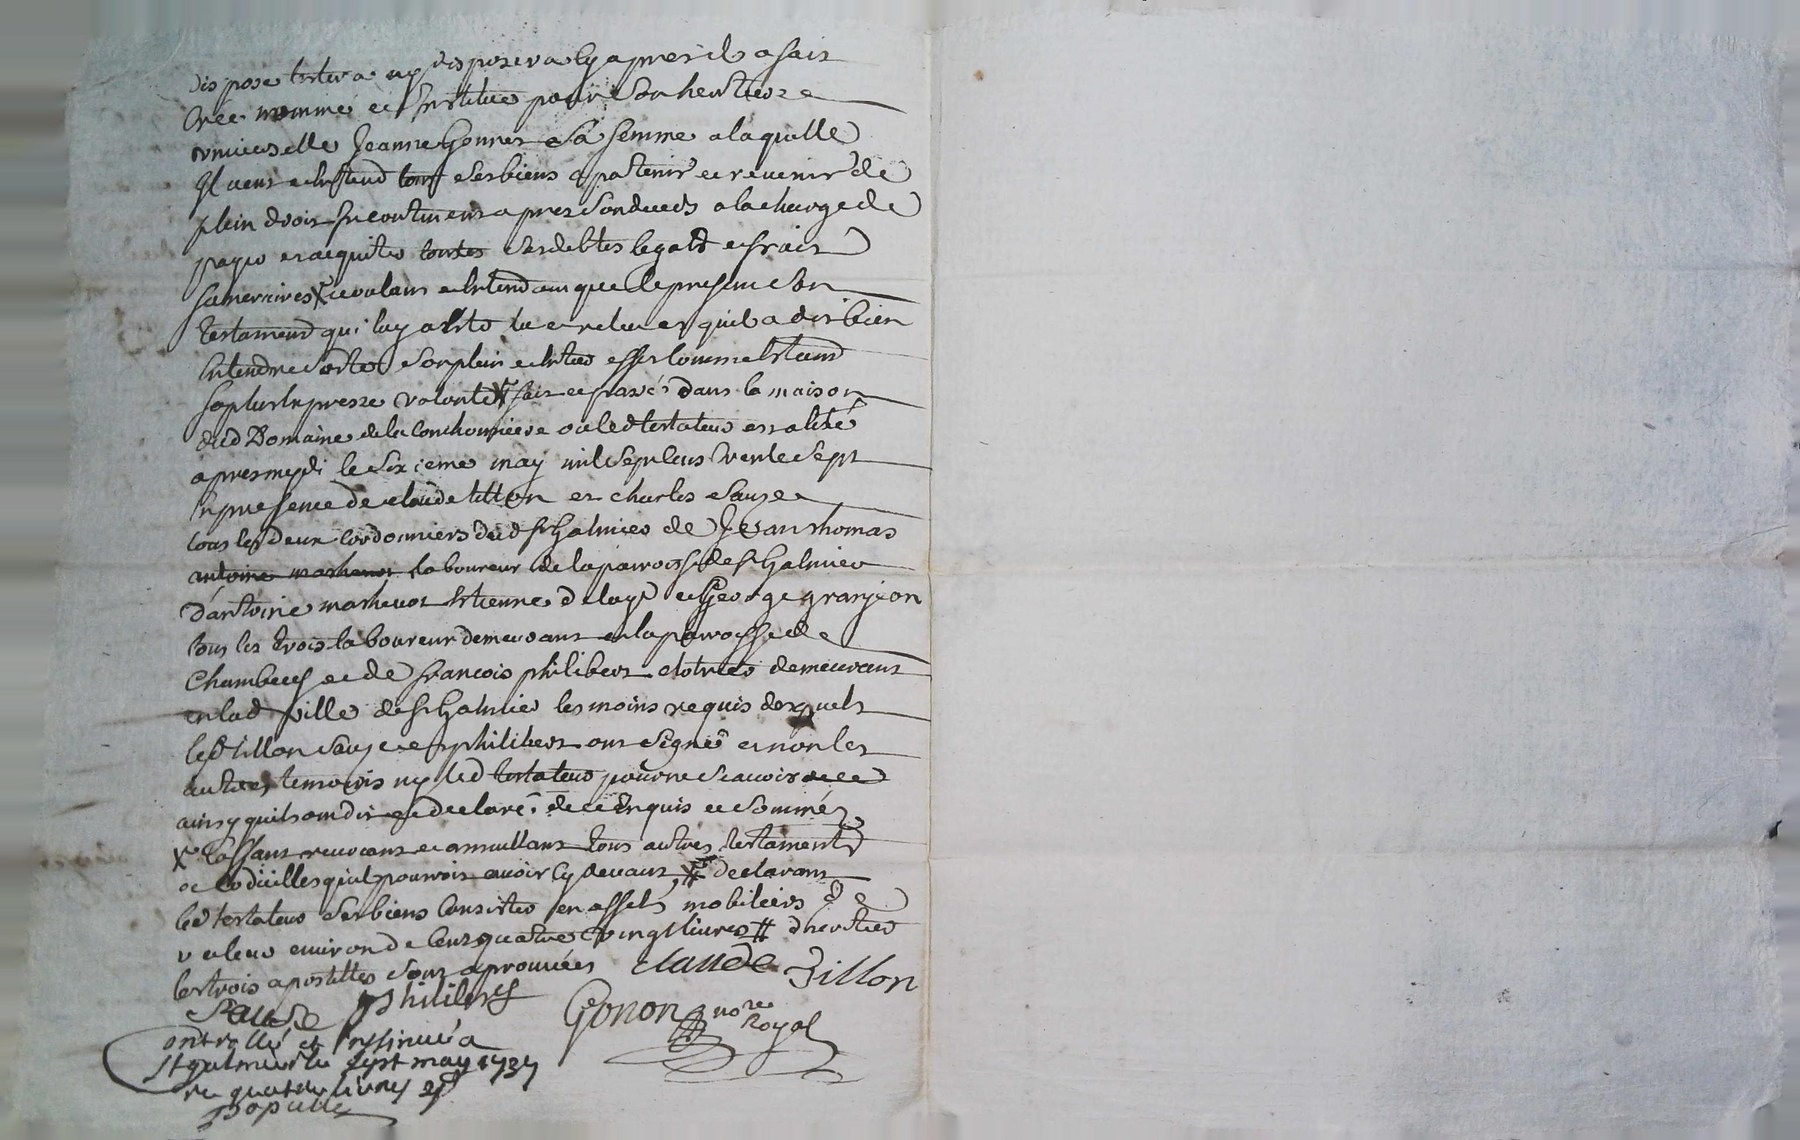 dispose testera ny disposera cy apres il a fait
Créé nommé et Institué pour son heritiere
universelle Jeanne Gonnet sa femme a laquelle
Il veut et Entend tous ses biens apartenir et revenir de
plein droit Incontinent apres son deceds a la charge de
payer et acquiter toutes ses debtes legats et frais
funeraires X et voulant et Entendant que le present son
testament qui luy a esté lu et relu et qu'il a dit bien
Entendre sorte son plein et Entier effet comme Estant
sa plus Expresse volonté X fait et passé dans la maison
dud Domaine de la Conchonniere ou led testateur est alité
apres mydi le sixieme may mil sept cens trente sept
En presence de claude tillon et charles sauze
tous les deux cordonniers dud st Galmier de Jean thomas
antoine laboureur de la paroisse de st Galmier
d'antoine mathevot Estienne delaye et George granjeon
tous les trois laboureur demeurant en la paroisse de
Chambeuf et de francois philibert demeurant
en lad ville de st Galmier les moins requis desquels
led tillon sauze et philibert ont signé et non les
autres temoins ny led testateur pour ne scavoir
ainsy qu'ils ont dit et declaré de ce Enquis et sommés
X Cassant revocant et annullant tous autres testaments
et codicilles qu'il pourroit avoir cy devant, X declarant
led testateur ses biens consister en effets mobiliers de
valeur environ de cent quatre vingt livres # d'heritier
les trois apostilles sont aprouvées claude Tillon
Sauze philibert Gonon nore
Royal
Controllé et Insinué a
St galmier le sept may 1737
re quatre livres